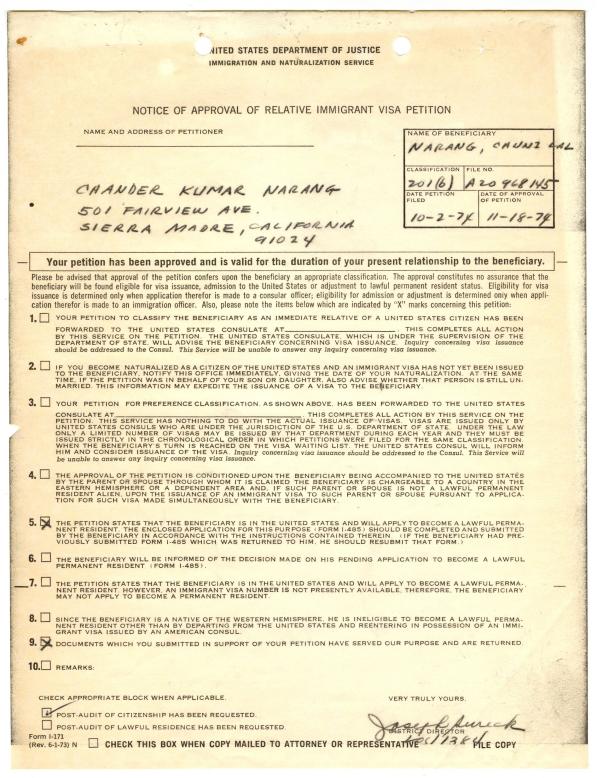 UNITED STATES DEPARTMENT OF JUSTICE
IMMIGRATION AND NATURALIZATION SERVICE
NOTICE OF APPROVAL OF RELATIVE IMMIGRANT VISA PETITION
NAME AND ADDRESS OF PETITIONER
NAME OF BENEFICIARY
NARANG, CHUNI LAL
CLASSIFICATION FILE NO.
201(b) A20 968 145
DATE PETITION FILED DATE OF APPROVAL OF PETITION
10-2-74 11-18-74
CHANDER KUMAR NARANG
501 FAIRVIEW AVE.
SIERRA MADRE, CALIFORNIA
91024
Your petition has been approved and is valid for the duration of your present relationship to the beneficiary.
Please be advised that approval of the petition confers upon the beneficiary an appropriate classification. The approval constitutes no assurance that the
beneficiary will be found eligible for visa issuance, admission to the United States or adjustment to lawful permanent resident status. Eligibility for visa
issuance is determined only when application therefor is made to a consular officer; eligibility for admission or adjustment is determined only when appli-
cation therefor is made to an immigration officer. Also, please note the items below which are indicated by "X" marks concerning this petition:
1. YOUR PETITION TO CLASSIFY THE BENEFICIARY AS AN IMMEDIATE RELATIVE OF A UNITED STATES CITIZEN HAS BEEN
FORWARDED TO THE UNITED STATES CONSULATE AT . THIS COMPLETES ALL ACTION
BY THIS SERVICE ON THE PETITION. THE UNITED STATES CONSULATE, WHICH IS UNDER THE SUPERVISION OF THE
DEPARTMENT OF STATE, WILL ADVISE THE BENEFICIARY CONCERNING VISA ISSUANCE. Inquiry concerning visa issuance
should be addressed to the Consul. This Service will be unable to answer any inquiry concerning visa issuance.
2. IF YOU BECOME NATURALIZED AS A CITIZEN OF THE UNITED STATES AND AN IMMIGRANT VISA HAS NOT YET BEEN ISSUED
TO THE BENEFICIARY, NOTIFY THIS OFFICE IMMEDIATELY, GIVING THE DATE OF YOUR NATURALIZATION. AT THE SAME
TIME, IF THE PETITION WAS IN BEHALF OF YOUR SON OR DAUGHTER, ALSO ADVISE WHETHER THAT PERSON IS STILL UN-
MARRIED. THIS INFORMATION MAY EXPEDITE THE ISSUANCE OF A VISA TO THE BENEFICIARY.
3. YOUR PETITION FOR PREFERENCE CLASSIFICATION, AS SHOWN ABOVE, HAS BEEN FORWARDED TO THE UNITED STATES
CONSULATE AT . THIS COMPLETES ALL ACTION BY THIS SERVICE ON THE
PETITION. THIS SERVICE HAS NOTHING TO DO WITH THE ACTUAL ISSUANCE OF VISAS. VISAS ARE ISSUED ONLY BY
UNITED STATES CONSULS WHO ARE UNDER THE JURISDICTION OF THE U.S. DEPARTMENT OF STATE. UNDER THE LAW
ONLY A LIMITED NUMBER OF VISAS MAY BE ISSUED BY THAT DEPARTMENT DURING EACH YEAR AND THEY MUST BE
ISSUED STRICTLY IN THE CHRONOLOGICAL ORDER IN WHICH PETITIONS WERE FILED FOR THE SAME CLASSIFICATION.
WHEN THE BENEFICIARY'S TURN IS REACHED ON THE VISA WAITING LIST, THE UNITED STATES CONSUL WILL INFORM
HIM AND CONSIDER ISSUANCE OF THE VISA. Inquiry concerning visa issuance should be addressed to the Consul. This Service will
be unable to answer any inquiry concerning visa issuance.
4. THE APPROVAL OF THE PETITION IS CONDITIONED UPON THE BENEFICIARY BEING ACCOMPANIED TO THE UNITED STATES
BY THE PARENT OR SPOUSE THROUGH WHOM IT IS CLAIMED THE BENEFICIARY IS CHARGEABLE TO A COUNTRY IN THE
EASTERN HEMISPHERE OR A DEPENDENT AREA AND, IF SUCH PARENT OR SPOUSE IS NOT A LAWFUL PERMANENT
RESIDENT ALIEN, UPON THE ISSUANCE OF AN IMMIGRANT VISA TO SUCH PARENT OR SPOUSE PURSUANT TO APPLICA-
TION FOR SUCH VISA MADE SIMULTANEOUSLY WITH THE BENEFICIARY.
5. X THE PETITION STATES THAT THE BENEFICIARY IS IN THE UNITED STATES AND WILL APPLY TO BECOME A LAWFUL PERMA-
NENT RESIDENT. THE ENCLOSED APPLICATION FOR THIS PURPOSE (FORM I-485) SHOULD BE COMPLETED AND SUBMITTED
BY THE BENEFICIARY IN ACCORDANCE WITH THE INSTRUCTIONS CONTAINED THEREIN (IF THE BENEFICIARY HAD PRE-
VIOUSLY SUBMITTED FORM I-485 WHICH WAS RETURNED TO HIM, HE SHOULD RESUBMIT THAT FORM.)
6. THE BENEFICIARY WILL BE INFORMED OF THE DECISION MADE ON HIS PENDING APPLICATION TO BECOME A LAWFUL
PERMANENT RESIDENT (FORM I-485).
7. THE PETITION STATES THAT THE BENEFICIARY IS IN THE UNITED STATES AND WILL APPLY TO BECOME A LAWFUL PERMA-
NENT RESIDENT. HOWEVER, AN IMMIGRANT VISA NUMBER IS NOT PRESENTLY AVAILABLE, THEREFORE, THE BENEFICIARY
MAY NOT APPLY TO BECOME A PERMANENT RESIDENT.
8. SINCE THE BENEFICIARY IS A NATIVE OF THE WESTERN HEMISPHERE, HE IS INELIGIBLE TO BECOME A LAWFUL PERMA-
NENT RESIDENT OTHER THAN BY DEPARTING FROM THE UNITED STATES AND REENTERING IN POSSESSION OF AN IMMI-
GRANT VISA ISSUED BY AN AMERICAN CONSUL.
9. X DOCUMENTS WHICH YOU SUBMITTED IN SUPPORT OF YOUR PETITION HAVE SERVED OUR PURPOSE AND ARE RETURNED.
10. REMARKS:
CHECK APPROPRIATE BLOCK WHEN APPLICABLE. VERY TRULY YOURS,
POST-AUDIT OF CITIZENSHIP HAS BEEN REQUESTED.
POST-AUDIT OF LAWFUL RESIDENCE HAS BEEN REQUESTED. DISTRICT DIRECTOR
Form I-171
(Rev. 6-1-73) N CHECK THIS BOX WHEN COPY MAILED TO ATTORNEY OR REPRESENTATIVE FILE COPY